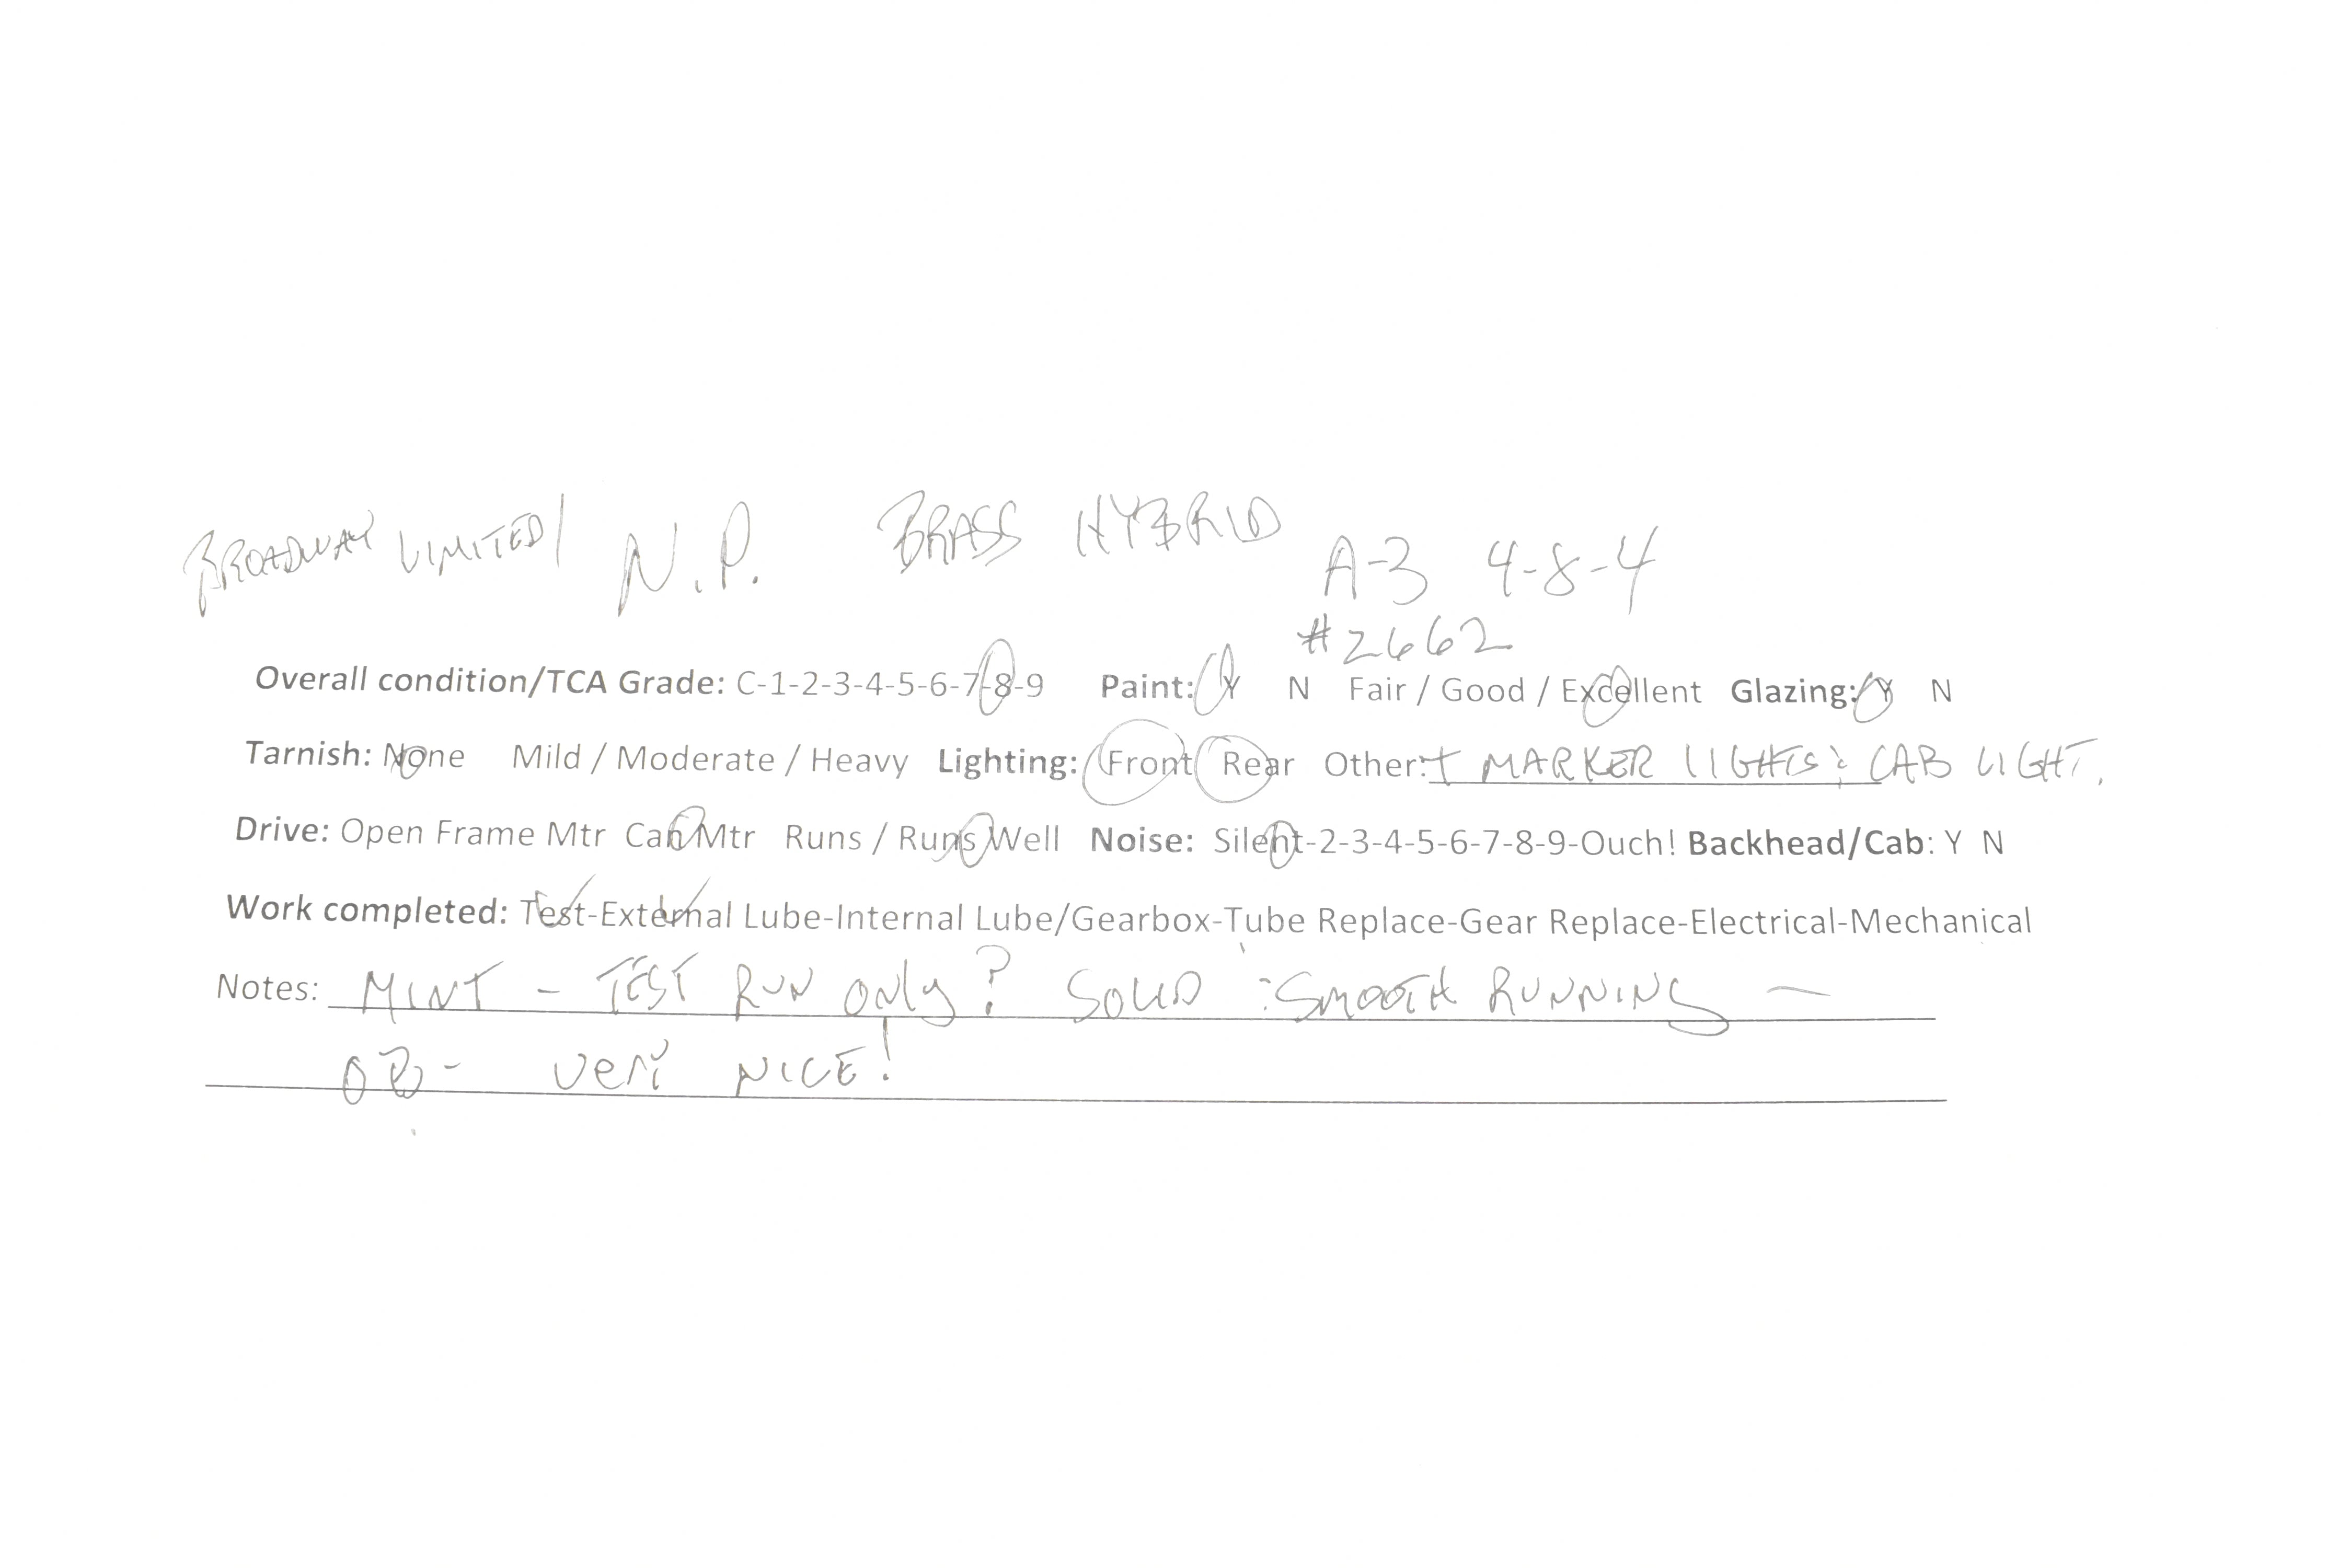 BROADWAY LIMITED/ N.P. BRASS HYBRID A-3 4-8-4
#2662
Overall condition/TCA Grade: C-1-2-3-4-5-6-7-8-9 Paint: Y N Fair / Good / Excellent Glazing: Y N
Tarnish: None Mild / Moderate / Heavy Lighting: Front Rear Other: + MARKER LIGHTS & CAB LIGHT.
Drive: Open Frame Mtr Can Mtr Runs / Runs Well Noise: Silent-2-3-4-5-6-7-8-9-Ouch! Backhead/Cab: Y N
Work completed: Test-External Lube-Internal Lube/Gearbox-Tube Replace-Gear Replace-Electrical-Mechanical
Notes: MINT - TEST RUN ONLY? SOLID & SMOOTH RUNNING -
OB - VERY NICE!